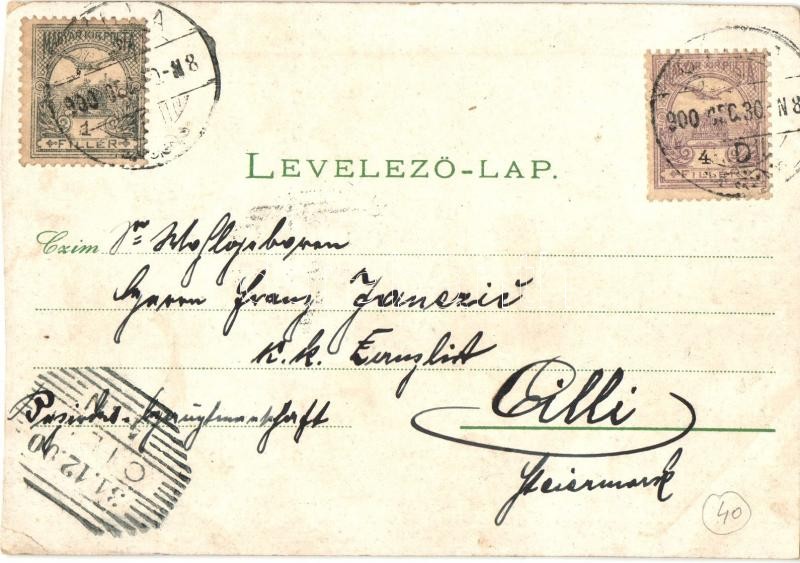 MAGYAR KIR. POSTA
1
FILLÉR
900 DEC. 30 N8
MAGYAR KIR. POSTA
4
FILLÉR
900 DEC. 30 N8
D
LEVELEZÖ-LAP.
Czim Sr Wohlgeboren
Herrn Franz Janezič
k. k. Kanzlist
Bezirkshauptmannschaft
Cilli
Steiermark
31.12.00
40